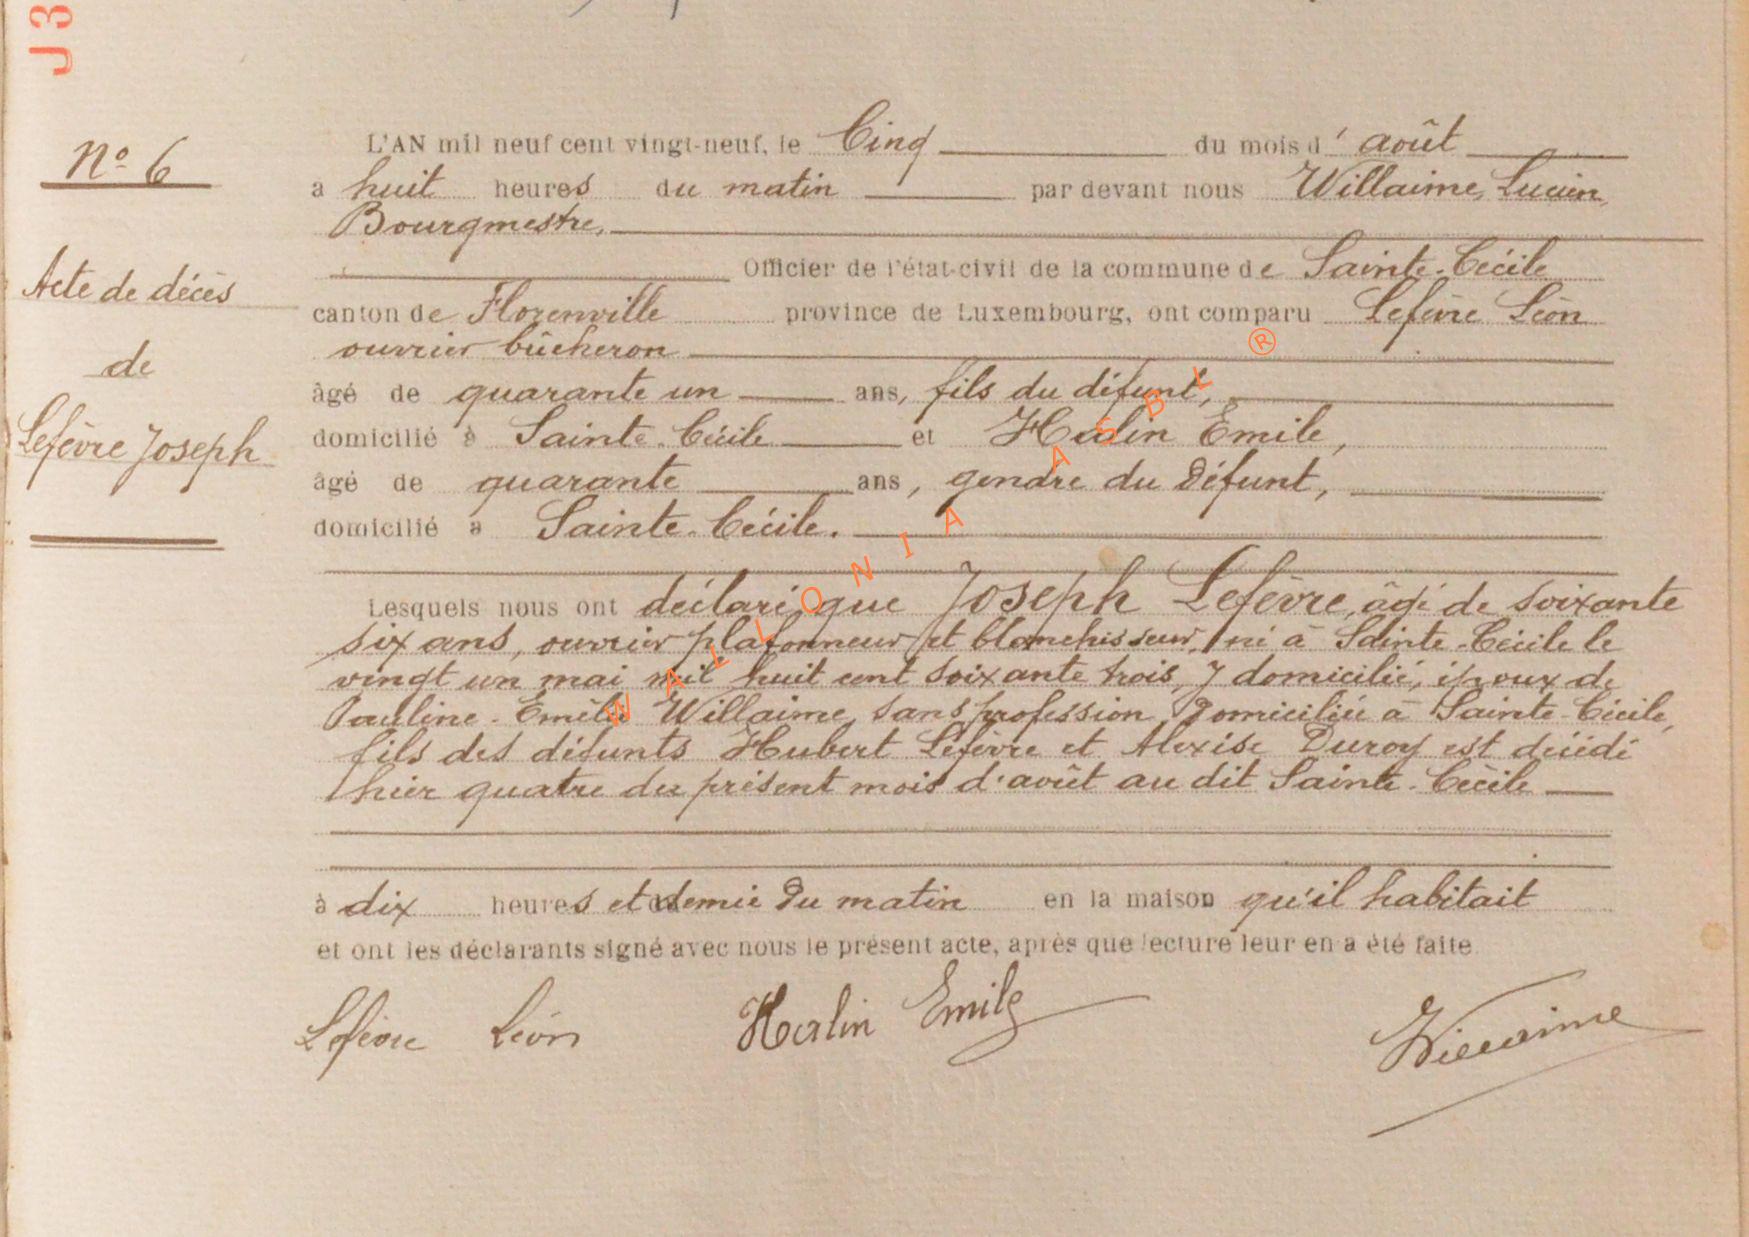 J3
N° 6
Acte de décès
de
Lefèvre Joseph
L'AN mil neuf cent vingt-neuf, le Cinq du mois d'août
a huit heures du matin par devant nous Willaime, Lucien,
Bourgmestre,
Officier de l'état-civil de la commune de Sainte-Cécile
canton de Florenville province de Luxembourg, ont comparu Lefèvre Léon
ouvrier bûcheron
âgé de quarante un ans, fils du défunt,
domicilié à Sainte-Cécile et Halin Emile,
âgé de quarante ans, gendre du défunt,
domicilié a Sainte-Cécile.
Lesquels nous ont déclaré que Joseph Lefèvre, âgé de soixante
six ans, ouvrier plafonneur et blanchisseur, né à Sainte-Cécile le
vingt un mai mil huit cent soixante trois, y domicilié, époux de
Pauline-Emélie Willaime, sans profession, domiciliée à Sainte-Cécile,
fils des défunts Hubert Lefèvre et Alexise Duroy est décédé
hier quatre du présent mois d'août au dit Sainte-Cécile
à dix heures et demie du matin en la maison qu'il habitait
et ont les déclarants signé avec nous le présent acte, après que lecture leur en a été faite.
Lefèvre Léon Halin Emile Willaime
WALLONIA ASBL ®